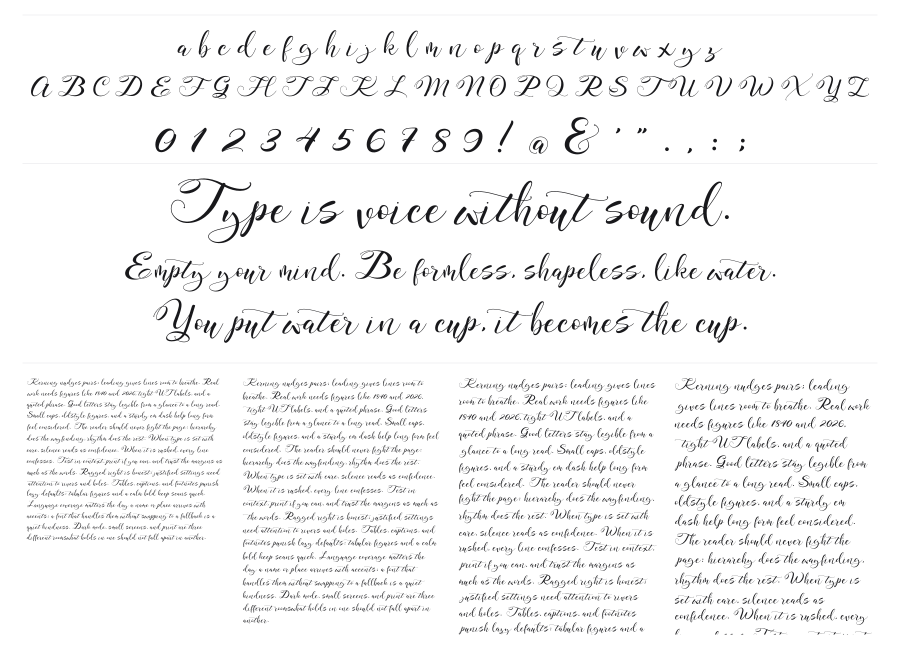 a b c d e f g h i j k l m n o p q r s t u v w x y z
A B C D E F G H I J K L M N O P Q R S T U V W X Y Z
0 1 2 3 4 5 6 7 8 9 ! @ & ' " . , : ;
Type is voice without sound.
Empty your mind. Be formless, shapeless, like water.
You put water in a cup, it becomes the cup.
Kerning nudges pairs; leading gives lines room to breathe. Real
work needs figures like 1940 and 2026, tight UI labels, and a
quoted phrase. Good letters stay legible from a glance to a long read.
Small caps, oldstyle figures, and a sturdy en dash help long form
feel considered. The reader should never fight the page; hierarchy
does the wayfinding, rhythm does the rest. When type is set with
care, silence reads as confidence. When it is rushed, every line
confesses. Test in context, print if you can, and trust the margins as
much as the words. Ragged right is honest; justified settings need
attention to rivers and holes. Tables, captions, and footnotes punish
lazy defaults; tabular figures and a calm bold keep scans quick.
Language coverage matters the day a name or place arrives with
accents; a font that handles them without swapping to a fallback is a
quiet kindness. Dark mode, small screens, and print are three
different rooms; what holds in one should not fall apart in another.
Kerning nudges pairs; leading gives lines room to
breathe. Real work needs figures like 1940 and 2026,
tight UI labels, and a quoted phrase. Good letters
stay legible from a glance to a long read. Small caps,
oldstyle figures, and a sturdy en dash help long form feel
considered. The reader should never fight the page;
hierarchy does the wayfinding, rhythm does the rest.
When type is set with care, silence reads as confidence.
When it is rushed, every line confesses. Test in
context, print if you can, and trust the margins as much as
the words. Ragged right is honest; justified settings
need attention to rivers and holes. Tables, captions, and
footnotes punish lazy defaults; tabular figures and a calm
bold keep scans quick. Language coverage matters the
day a name or place arrives with accents; a font that
handles them without swapping to a fallback is a quiet
kindness. Dark mode, small screens, and print are three
different rooms; what holds in one should not fall apart in
another.
Kerning nudges pairs; leading gives lines
room to breathe. Real work needs figures like
1940 and 2026, tight UI labels, and a
quoted phrase. Good letters stay legible from a
glance to a long read. Small caps, oldstyle
figures, and a sturdy en dash help long form
feel considered. The reader should never
fight the page; hierarchy does the wayfinding,
rhythm does the rest. When type is set with
care, silence reads as confidence. When it is
rushed, every line confesses. Test in context,
print if you can, and trust the margins as
much as the words. Ragged right is honest;
justified settings need attention to rivers
and holes. Tables, captions, and footnotes
punish lazy defaults; tabular figures and a
Kerning nudges pairs; leading
gives lines room to breathe. Real work
needs figures like 1940 and 2026,
tight UI labels, and a quoted
phrase. Good letters stay legible from
a glance to a long read. Small caps,
oldstyle figures, and a sturdy en
dash help long form feel considered.
The reader should never fight the
page; hierarchy does the wayfinding,
rhythm does the rest. When type is
set with care, silence reads as
confidence. When it is rushed, every